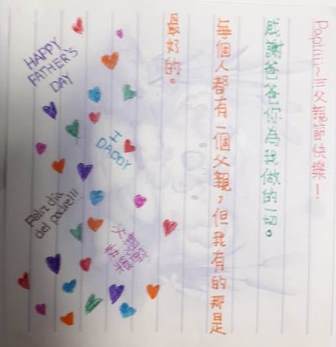 Papiii~父親節快樂！
感謝爸爸你為我做的一切。
每個人都有一個父親，但我有的那是
最好的。
HAPPY
FATHER'S
DAY
I
DADDY
Feliz día
del padre!!!
父親節
快樂